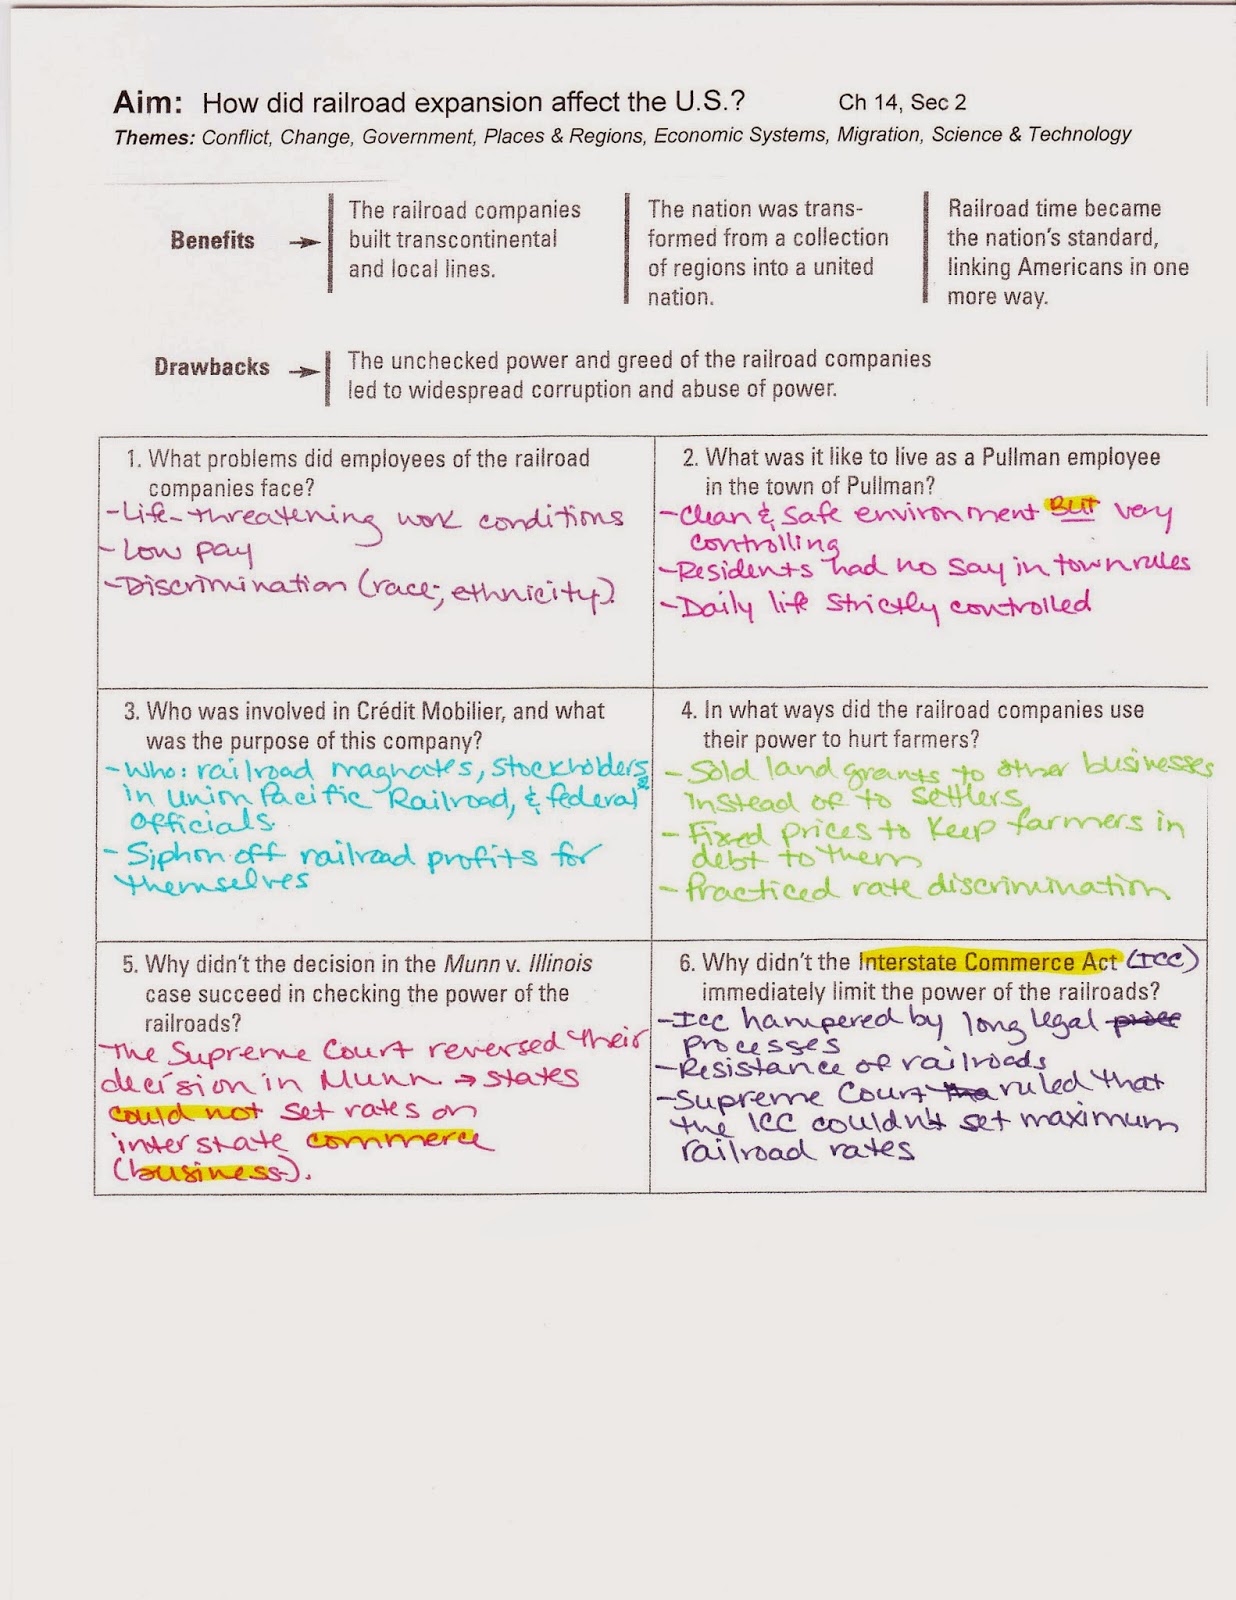 Aim: How did railroad expansion affect the U.S.? Ch 14, Sec 2
Themes: Conflict, Change, Government, Places & Regions, Economic Systems, Migration, Science & Technology
Benefits →
The railroad companies
built transcontinental
and local lines.
The nation was trans-
formed from a collection
of regions into a united
nation.
Railroad time became
the nation's standard,
linking Americans in one
more way.
Drawbacks →
The unchecked power and greed of the railroad companies
led to widespread corruption and abuse of power.
1. What problems did employees of the railroad
companies face?
-Life-threatening work conditions
-Low pay
-Discrimination (race; ethnicity).
2. What was it like to live as a Pullman employee
in the town of Pullman?
-Clean & safe environment But very
controlling
-Residents had no say in town rules
-Daily life strictly controlled
3. Who was involved in Crédit Mobilier, and what
was the purpose of this company?
-Who: railroad magnates, stockholders
in Union Pacific Railroad, & federal
officials.
-Siphon off railroad profits for
themselves
4. In what ways did the railroad companies use
their power to hurt farmers?
-Sold land grants to other businesses
instead of to settlers
-Fixed prices to keep farmers in
debt to them
-Practiced rate discrimination
5. Why didn't the decision in the Munn v. Illinois
case succeed in checking the power of the
railroads?
The Supreme Court reversed their
decision in Munn → states
could not set rates on
interstate commerce
(business).
6. Why didn't the Interstate Commerce Act (ICC)
immediately limit the power of the railroads?
-ICC hampered by long legal
processes
-Resistance of railroads
-Supreme Court ruled that
the ICC couldn't set maximum
railroad rates